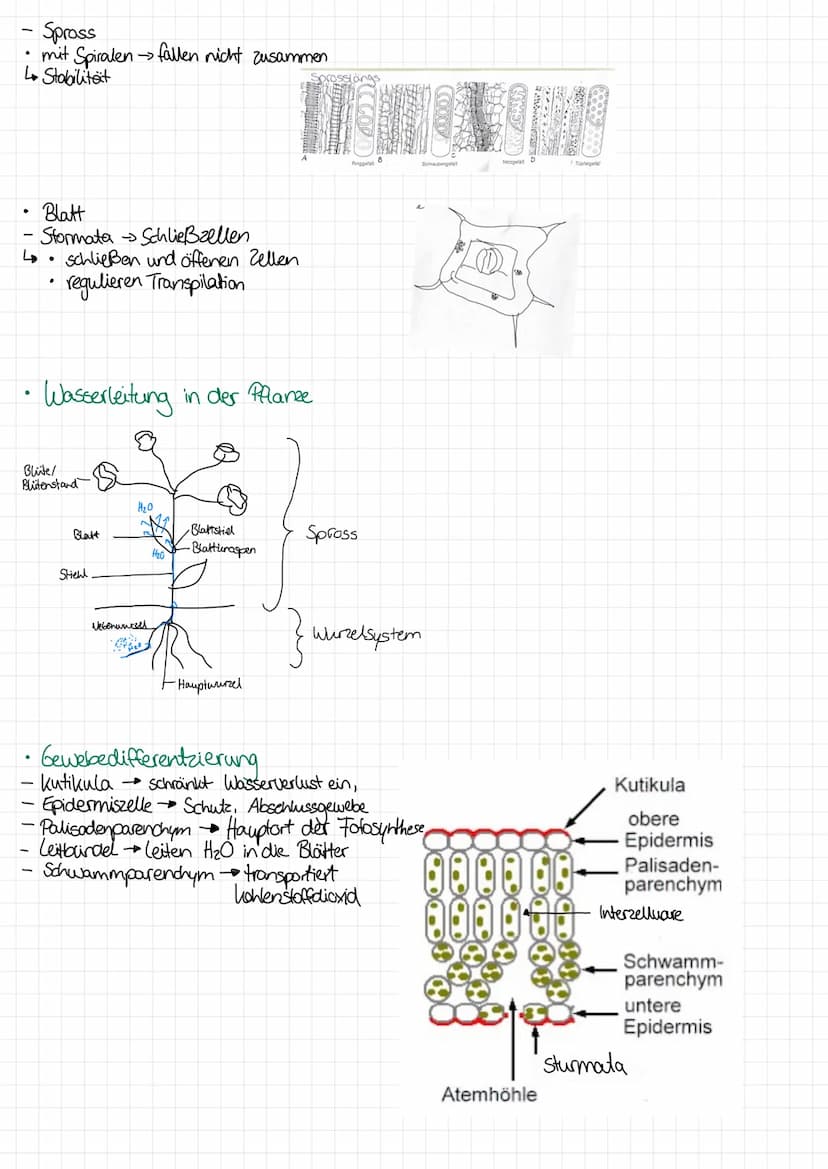 - Spross
• mit Spiralen → fallen nicht zusammen
↳ Stabilität
Sprosslängs
A
Ringgefäß
B
Schraubengefäß
C
Netzgefäß
D
Tüpfelgefäß
• Blatt
- Stormata → Schließzellen
↳ • schließen und öffenen Zellen
• regulieren Transpilation
• Wasserleitung in der Pflanze
Blüte/
Blütenstand
H₂O
Blatt
Blattstiel
H₂O
Stiehl
Spross
Nebenwurzel
H₂O
Wurzelsystem
Hauptwurzel
• Gewebedifferentzierung
- Kutikula → schränkt Wasserverlust ein,
- Epidermiszelle → Schutz, Abschlussgewebe
- Palisadenparenchym → Hauptort der Fotosynthese
- Leitbündel → leiten H₂O in die Blätter
- Schwammparenchym → transportiert
kohlenstoffdioxid
Kutikula
obere
Epidermis
Palisaden-
parenchym
Interzelluare
Schwamm-
parenchym
untere
Epidermis
Sturmata
Atemhöhle